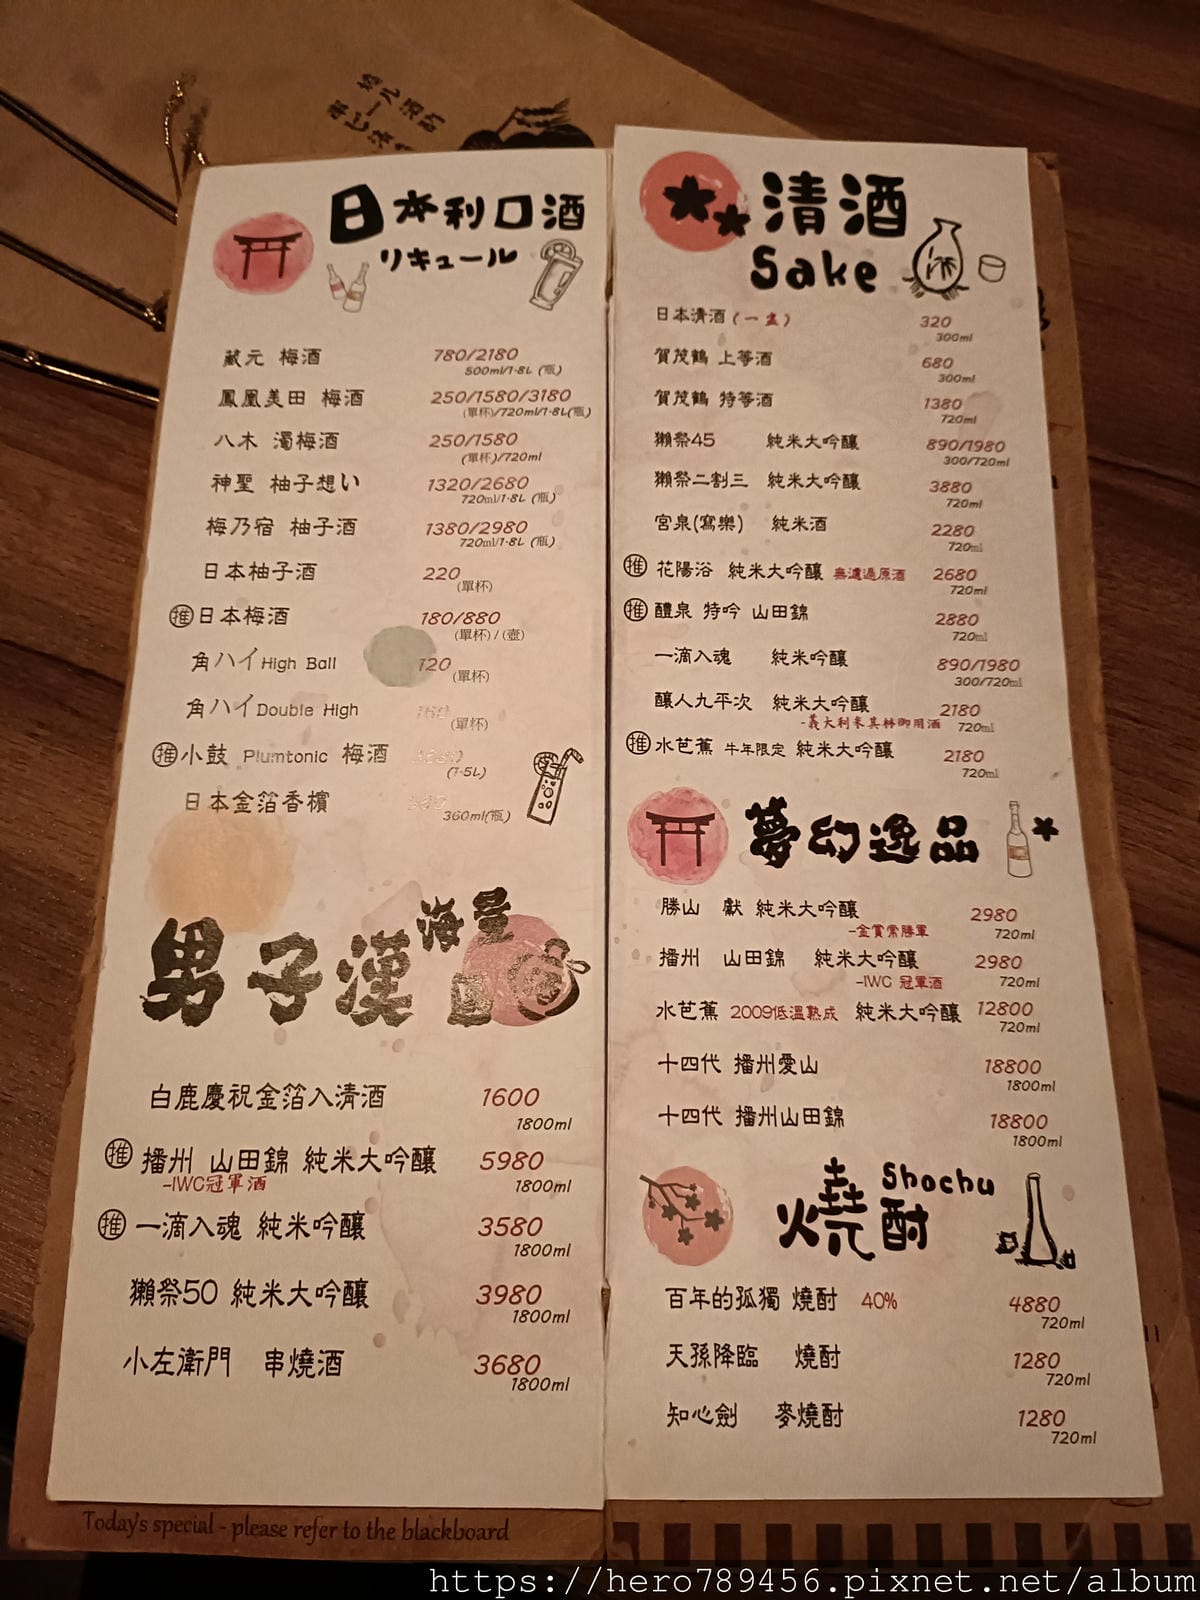 日本利口酒
リキュール
蔵元 梅酒 780/2180
500ml/1.8L (瓶)
鳳凰美田 梅酒 250/1580/3180
(單杯)/720ml/1.8L(瓶)
八木 濁梅酒 250/1580
(單杯)/720ml
神聖 柚子想い 1320/2680
720ml/1.8L (瓶)
梅乃宿 柚子酒 1380/2980
720ml/1.8L (瓶)
日本柚子酒 220
(單杯)
推 日本梅酒 180/880
(單杯) / (壺)
角ハイHigh Ball 120
(單杯)
角ハイDouble High
(單杯)
推 小鼓 Plumtonic 梅酒
(1.5L)
日本金箔香檳
360ml(瓶)
男子漢 海量
白鹿慶祝金箔入清酒 1600
1800ml
推 播州 山田錦 純米大吟釀 5980
-IWC冠軍酒 1800ml
推 一滴入魂 純米吟釀 3580
1800ml
獺祭50 純米大吟釀 3980
1800ml
小左衛門 串燒酒 3680
1800ml
Today's special - please refer to the blackboard
清酒
Sake
日本清酒(一壺) 320
300ml
賀茂鶴 上等酒 680
300ml
賀茂鶴 特等酒 1380
720ml
獺祭45 純米大吟釀 890/1980
300/720ml
獺祭二割三 純米大吟釀 3880
720ml
宮泉(寫樂) 純米酒 2280
720ml
推 花陽浴 純米大吟釀 無濾過原酒 2680
720ml
推 醴泉 特吟 山田錦 2880
720ml
一滴入魂 純米吟釀 890/1980
300/720ml
釀人九平次 純米大吟釀 2180
-義大利米其林御用酒 720ml
推 水芭蕉 牛年限定 純米大吟釀 2180
720ml
夢幻逸品
勝山 獻 純米大吟釀 2980
-金賞常勝軍 720ml
播州 山田錦 純米大吟釀 2980
-IWC 冠軍酒 720ml
水芭蕉 2009低溫熟成 純米大吟釀 12800
720ml
十四代 播州愛山 18800
1800ml
十四代 播州山田錦 18800
1800ml
燒酎 Shochu
百年的孤獨 燒酎 40% 4880
720ml
天孫降臨 燒酎 1280
720ml
知心劍 麥燒酎 1280
720ml
https://hero789456.pixnet.net/album